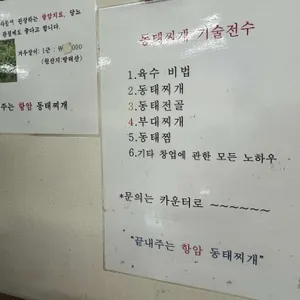 관절에 효과는 항암치료, 당뇨
관절에도 좋다고 합니다.
1근 : ₩ ,000
(원산지:
주는 항암 동태찌개
동태찌개 기술전수
1.육수 비법
2.동태찌개
3.동태전골
4.부대찌개
5.동태찜
6.기타 창업에 관한 모든 노하우
*문의는 카운터로 ~~~~~~
"끝내주는 항암 동태찌개"